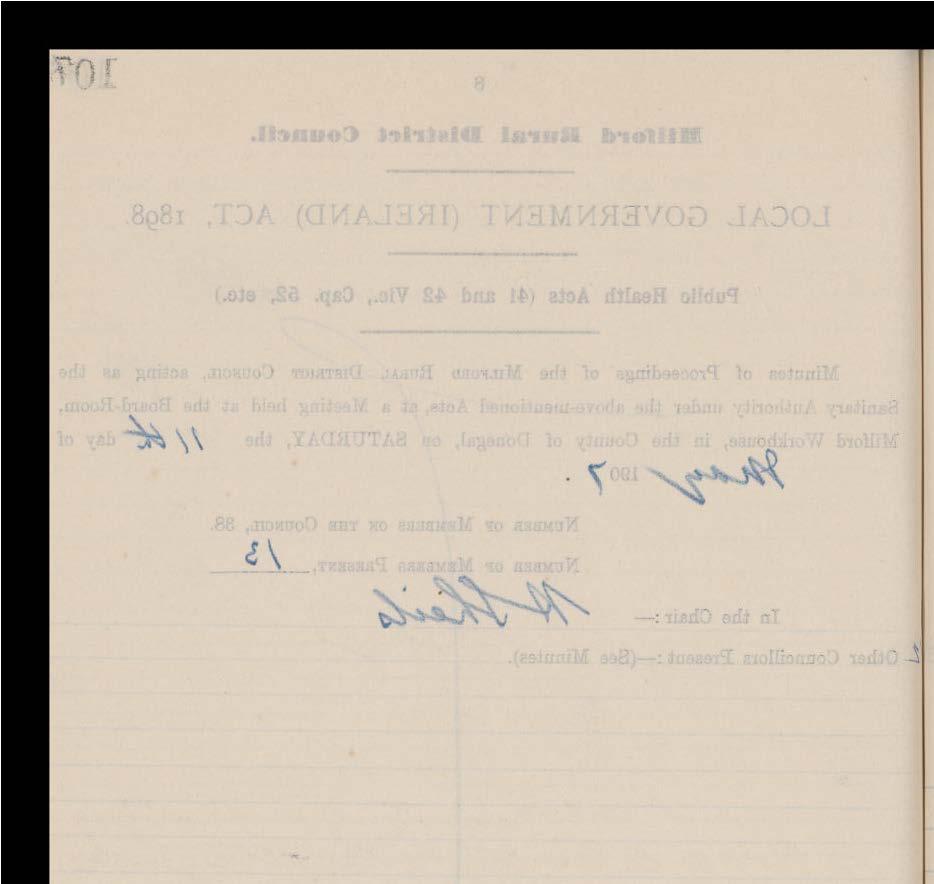 107
8
Milford Rural District Council.
LOCAL GOVERNMENT (IRELAND) ACT, 1898.
Public Health Acts (41 and 42 Vic., Cap. 52, etc.)
Minutes of Proceedings of the MILFORD RURAL DISTRICT COUNCIL, acting as the
Sanitary Authority under the above-mentioned Acts, at a Meeting held at the Board-Room,
Milford Workhouse, in the County of Donegal, on SATURDAY, the 11th day of
May 1907.
NUMBER OF MEMBERS ON THE COUNCIL, 38.
NUMBER OF MEMBERS PRESENT, 13
In the Chair:— H Sheils
Other Councillors Present:—(See Minutes).